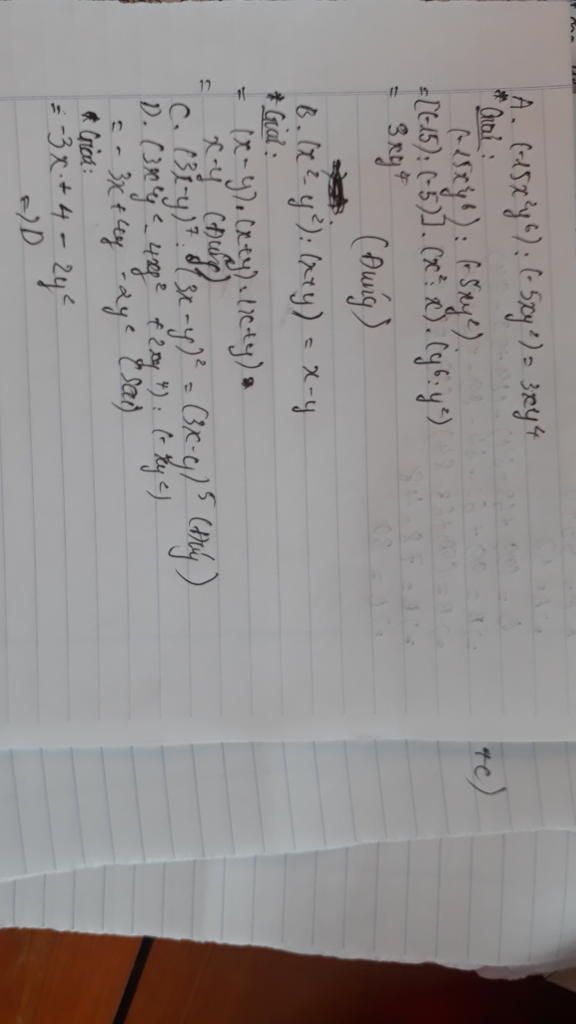 A. (-15x²y⁶) : (-5xy²) = 3xy⁴
* Giải:
(-15x²y⁶) : (-5xy²)
= [(-15) : (-5)] . (x² : x) . (y⁶ : y²)
= 3xy⁴
(Đúng)
B. (x² - y²) : (x+y) = x-y
* Giải:
= (x-y) . (x+y) : (x+y)
= x-y (Đúng)
C. (3x-y)⁷ : (3x-y)² = (3x-y)⁵ (Đúng)
D. (3x²y² - 4xy² + 2xy⁴) : (-xy²)
= -3x + 4y - 2y² (Sai)
* Giải:
= -3x + 4 - 2y²
=> D
+c)